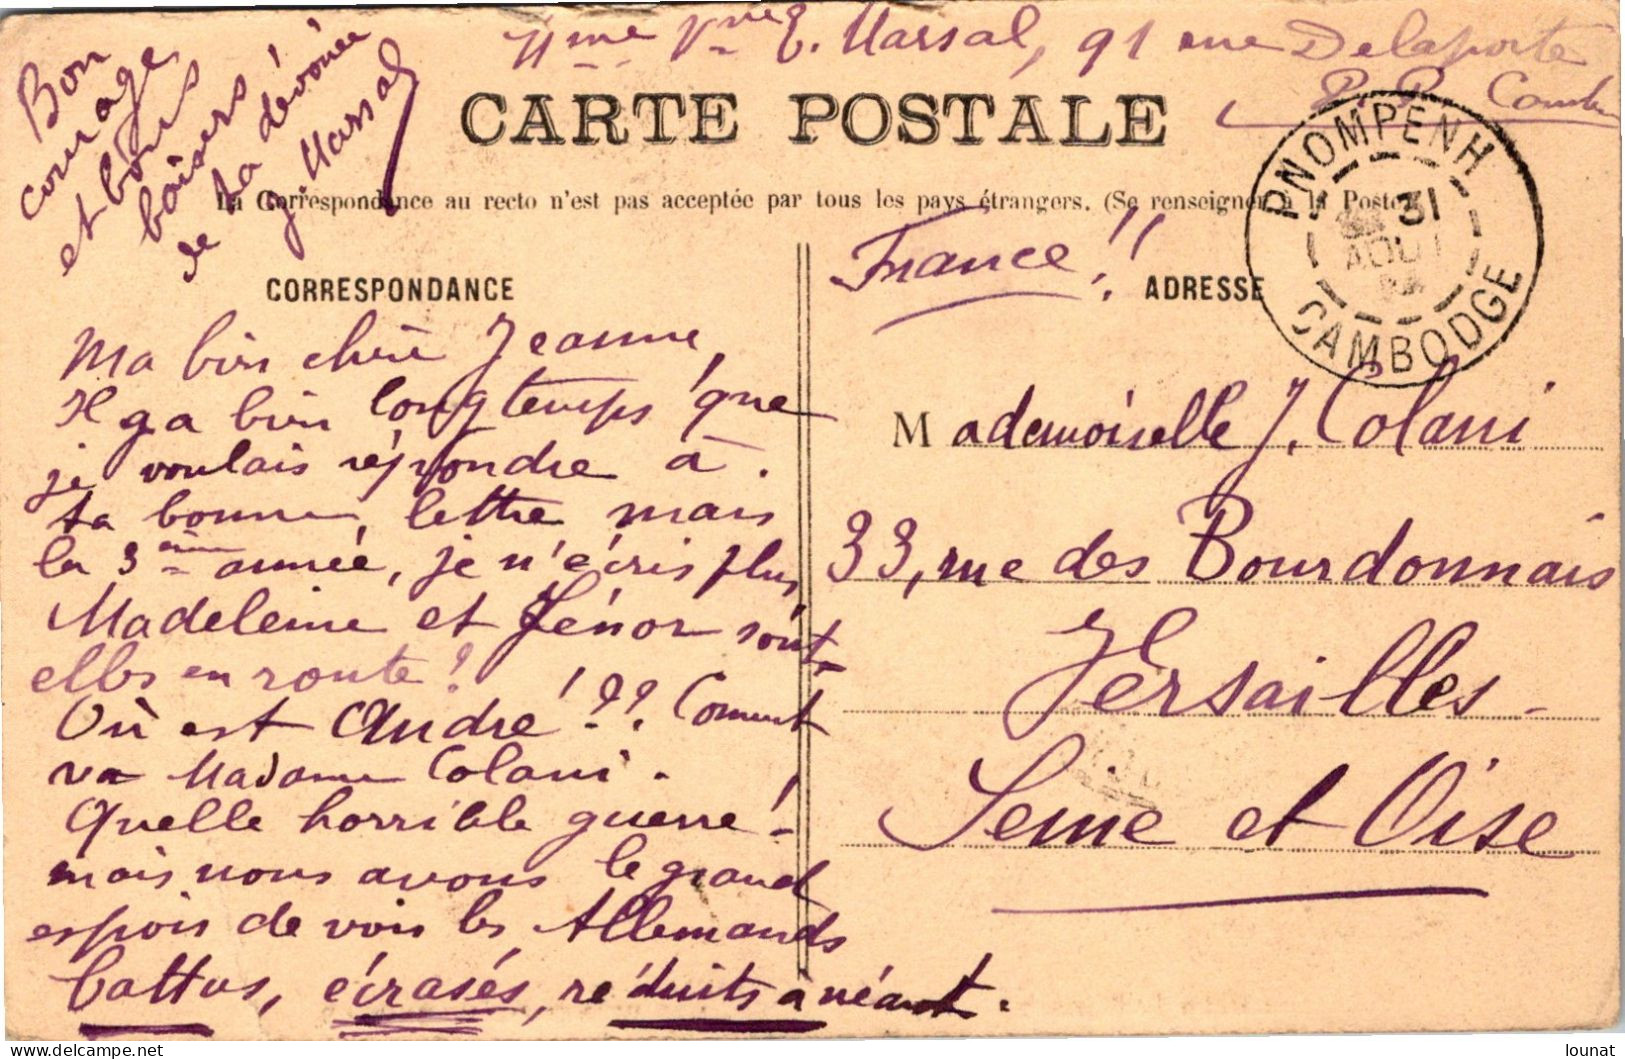 E. Marsal, 91 rue Delaporte
P. P.
Bon
courage
et bons
baisers
de ta dévouée
J. Marsal
CARTE POSTALE
La Correspondance au recto n'est pas acceptée par tous les pays étrangers. (Se renseigner à la Poste)
PNOMPENH
31
AOUT
CAMBODGE
France!!
CORRESPONDANCE
ADRESSE
Ma bien chère Jeanne,
Il y a bien longtemps que
je voulais répondre à
ta bonne lettre mais
la 3ème année, je n'écris plus
Madeleine et Lénor sont
elles en route?
Où est André!?? Comment
va Madame Colani.
Quelle horrible guerre!
mais nous avons le grand
espoir de voir les Allemands
battus, écrasés, réduits à néant.
Mademoiselle J. Colani
33, rue des Bourdonnais
Versailles
Seine et Oise
delcampe.net
lounat